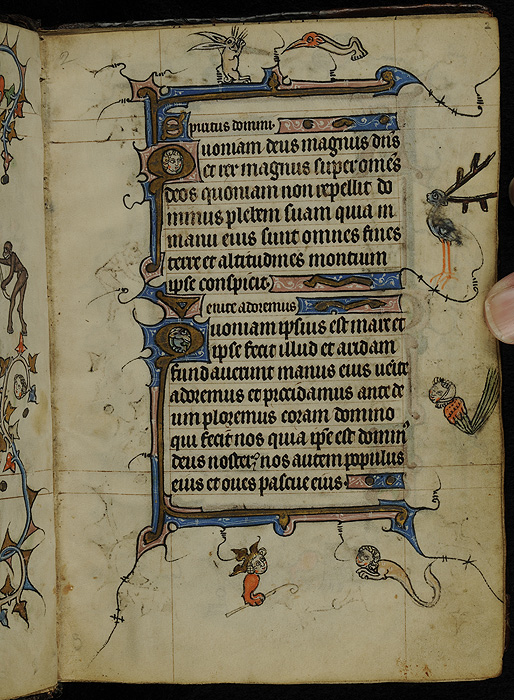 Spiritus domini.
Quoniam deus magnus dn̄s
et rex magnus super omēs
deos quoniam non repellit do
minus plebem suam quia in
manu eius sunt omnes fines
terre et altitudines montium
ipse conspicit.
Venite adoremus
Quoniam ipsius est mare et
ipse fecit illud et aridam
fundauerunt manus eius uenite
adoremus et procidamus ante de
um ploremus coram domino
qui fecit nos quia ip̄e est dominꝰ
deus noster, nos autem populus
eius et oues pascue eius.